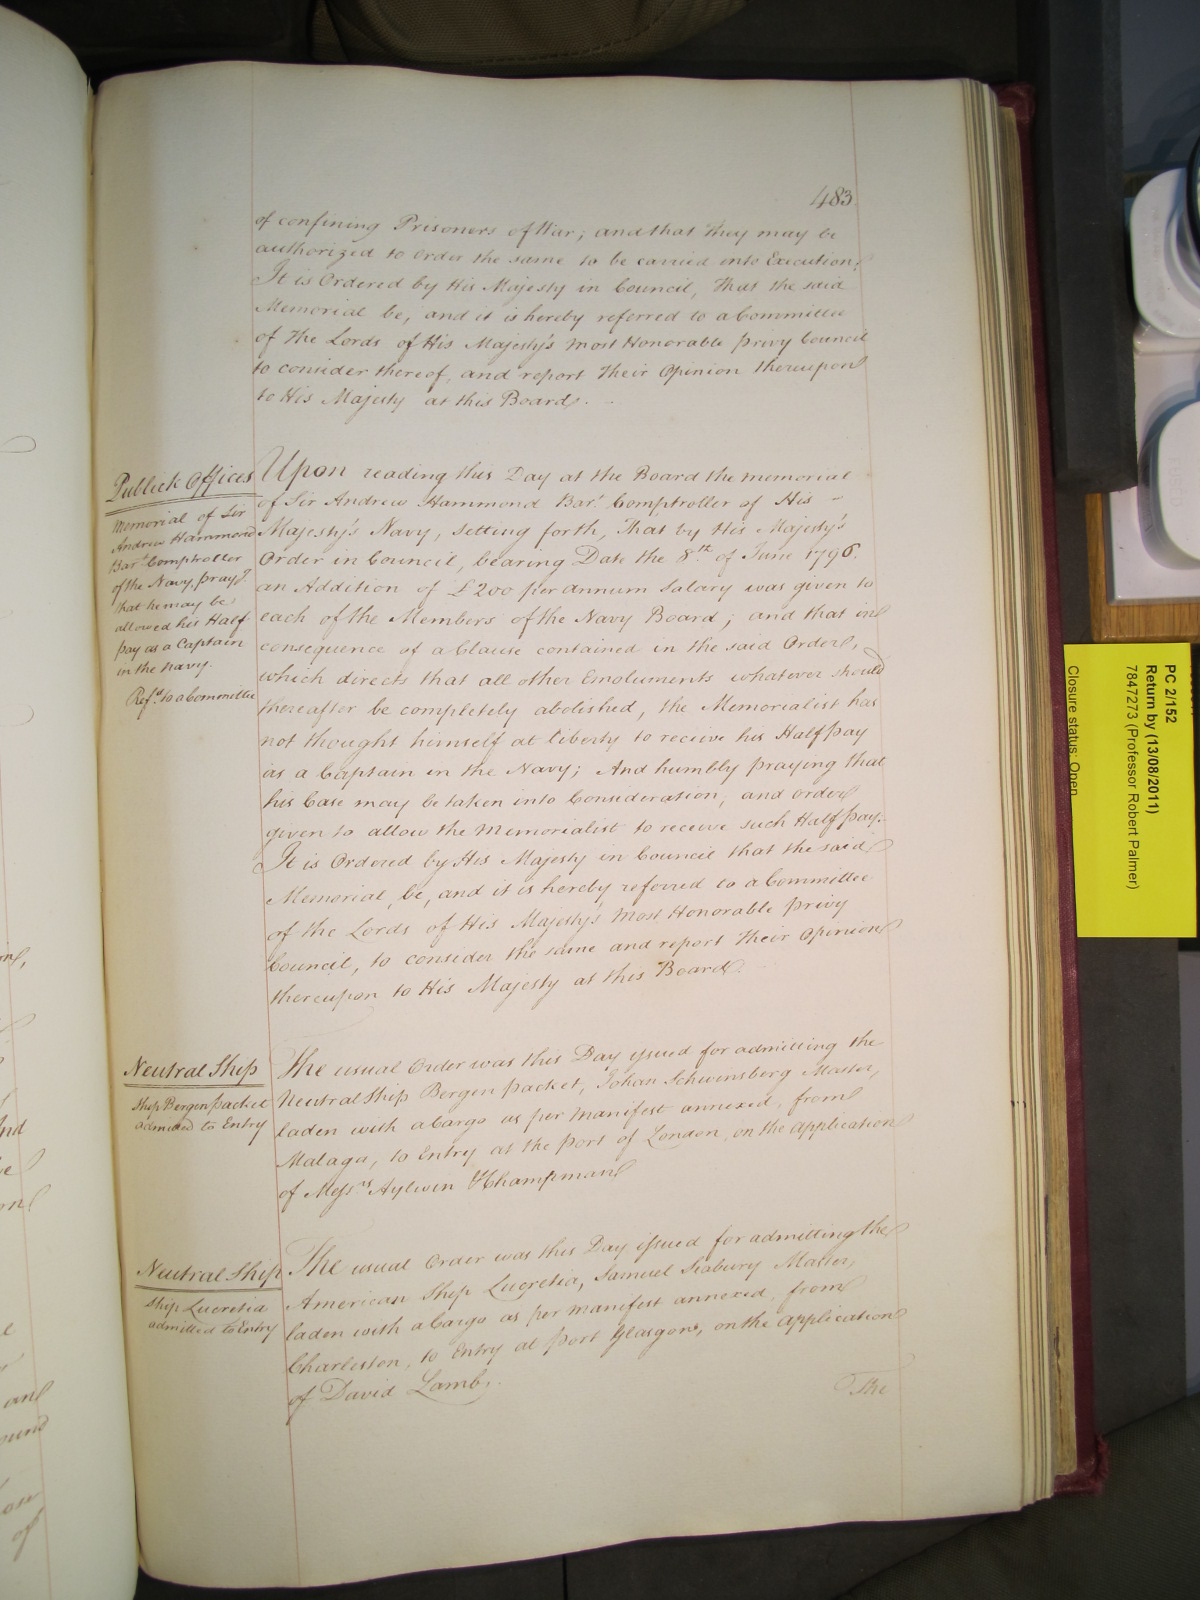 483.
of confining Prisoners of War; and that they may be
authorized to order the same to be carried into Execution;
It is Ordered by His Majesty in Council, That the said
Memorial be, and it is hereby referred to a Committee
of the Lords of His Majesty's most Honorable privy Council
to consider thereof, and report their Opinion thereupon
to His Majesty at this Board.
Publick Offices
Memorial of Sir
Andrew Hammond
Bart. Comptroller
of the Navy, prayg.
that he may be
allowed his Half
pay as a Captain
in the Navy.
Refd. to a Committee
Upon reading this Day at the Board the memorial
of Sir Andrew Hammond Bart. Comptroller of His
Majesty's Navy, setting forth, That by His Majesty's
Order in Council, bearing Date the 8th. of June 1796.
an Addition of £200 per annum Salary was given to
each of the Members of the Navy Board; and that in
consequence of a Clause contained in the said Order,
which directs that all other Emoluments whatever should
thereafter be completely abolished, the Memorialist has
not thought himself at liberty to receive his Half pay
as a Captain in the Navy; And humbly praying that
his Case may be taken into Consideration, and order
given to allow the Memorialist to receive such Half pay.
It is Ordered by His Majesty in Council that the said
Memorial, be, and it is hereby referred to a Committee
of the Lords of His Majesty's most Honorable privy
Council, to consider the same and report their Opinion
thereupon to His Majesty at this Board.
Neutral Ship
Ship Bergen packet
admitted to Entry
The usual Order was this Day issued for admitting the
Neutral Ship Bergen packet, Johan Schwensberg Master,
laden with a Cargo as per manifest annexed, from
Malaga, to Entry at the port of London, on the application
of Messrs. Aylwin & Champman
Neutral Ship
Ship Lucretia
admitted to Entry
The usual Order was this Day issued for admitting the
American Ship Lucretia, Samuel Seabury Master,
laden with a Cargo as per manifest annexed, from
Charleston, to Entry at port Glasgow, on the application
of David Lamb.
The
PC 2/152
Return by (13/08/2011)
7847273 (Professor Robert Palmer)
Closure status: Open